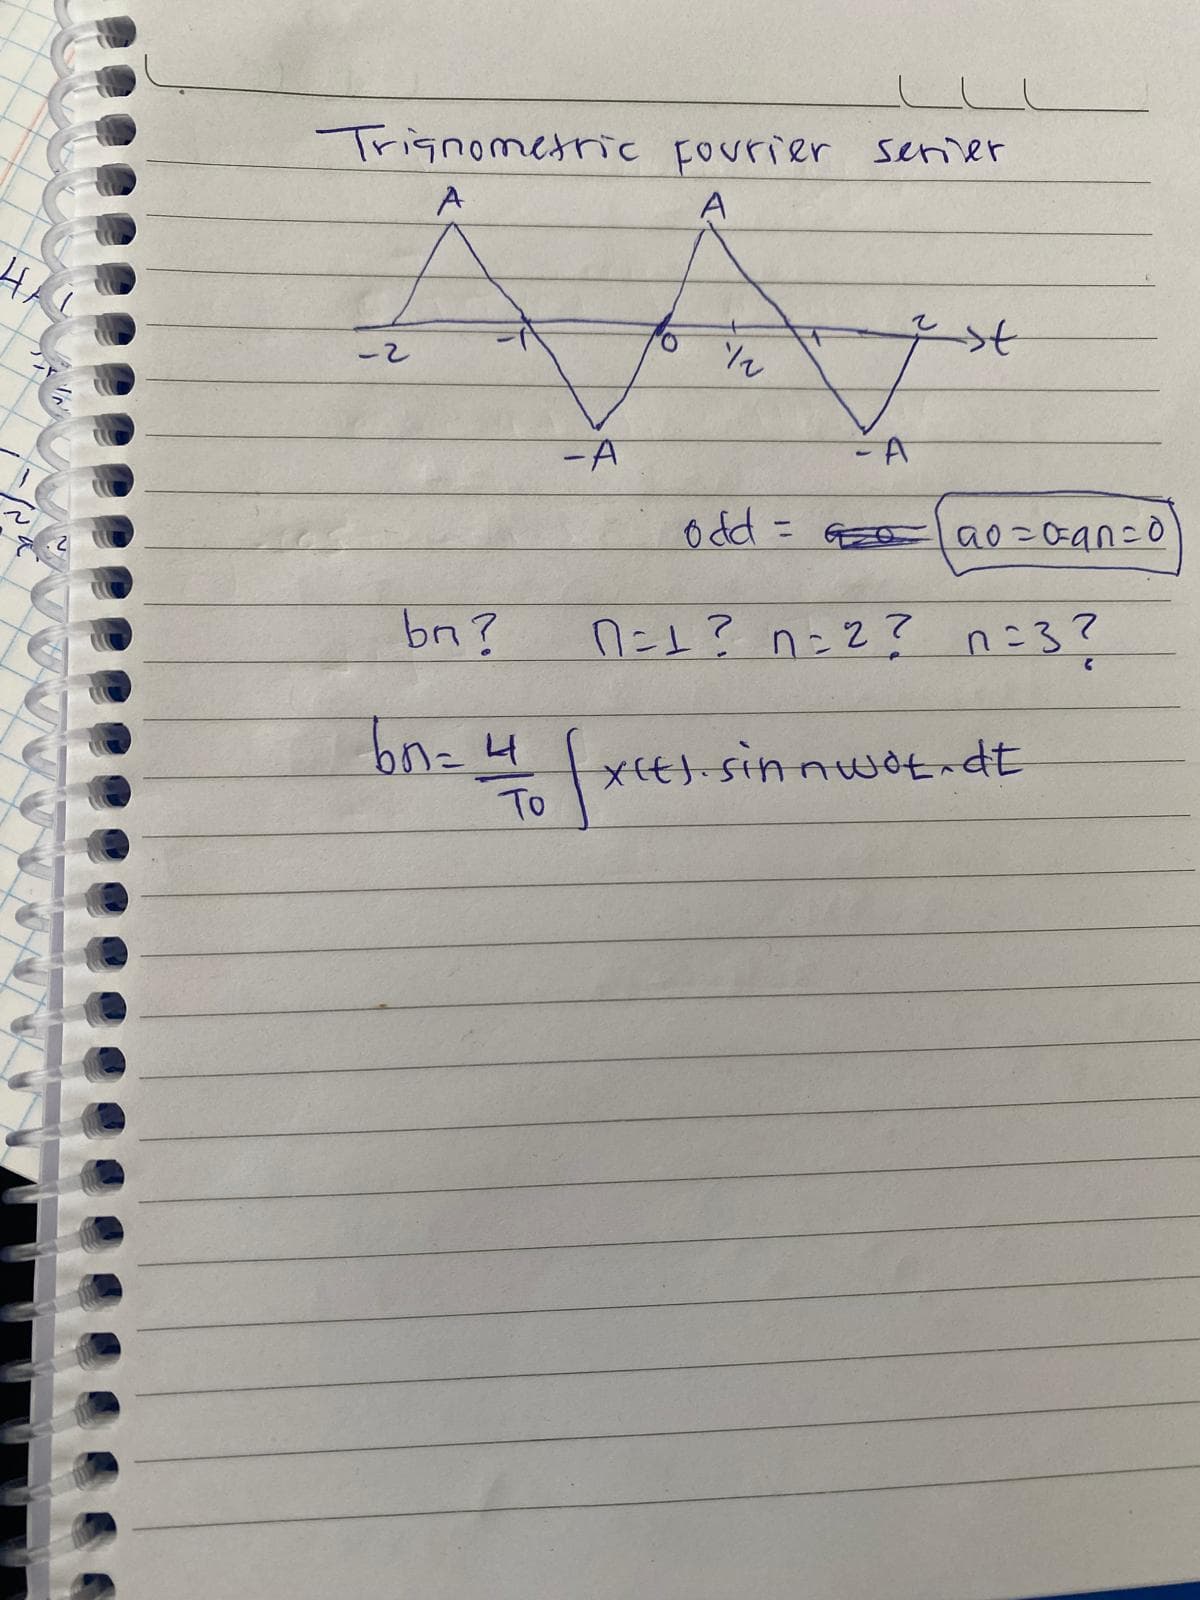 Trignometric fourier serier
A A
-2 -1 0 1/2 1 2 t
-A -A
odd = a0=0=an=0
bn? n=1? n=2? n=3?
bn= 4/T0 ∫ x(t). sin nw0t.dt